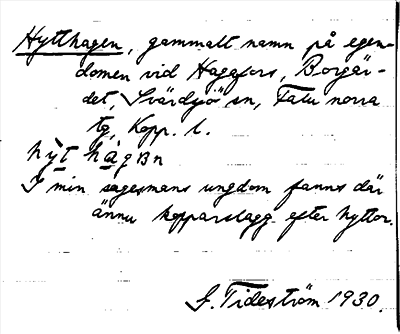 Hytthagen, gammalt namn på egen-
domen vid Hagafors, Borgär-
det, Svärdsjö sn, Falu norra
tg, Kopp. l.
hỳt hàgɐn
I min sagesmans ungdom fanns där
ännu kopparslagg efter hyttor.
J. Tideström 1930.